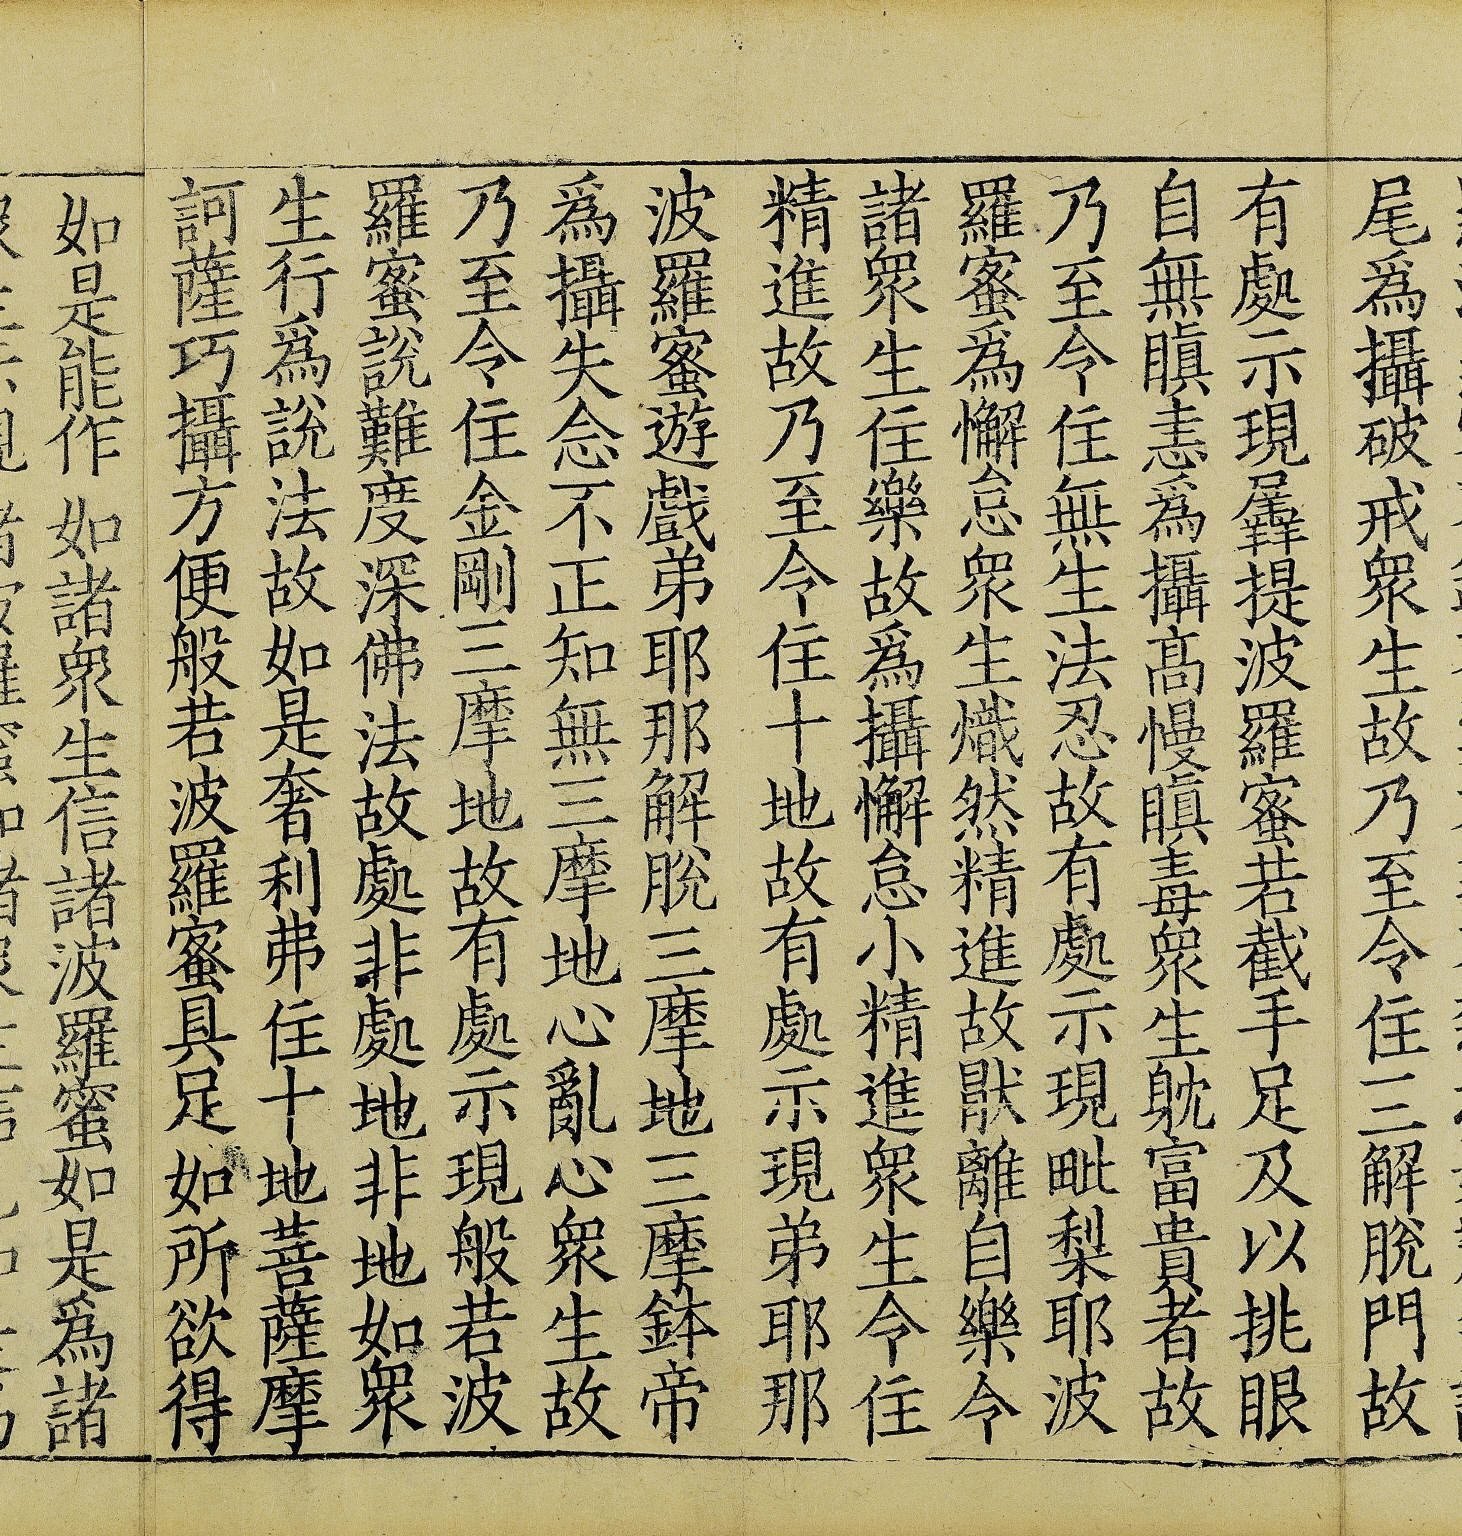 尾爲攝破戒衆生故乃至令住三解脫門故
有處示現羼提波羅蜜若截手足及以挑眼
自無瞋恚爲攝高慢瞋毒衆生躭富貴者故
乃至令住無生法忍故有處示現毗梨耶波
羅蜜爲懈怠衆生熾然精進故猒離自樂令
諸衆生住樂故爲攝懈怠小精進衆生令住
精進故乃至令住十地故有處示現弟耶那
波羅蜜遊戲弟耶那解脫三摩地三摩鉢帝
爲攝失念不正知無三摩地心亂心衆生故
乃至令住金剛三摩地故有處示現般若波
羅蜜說難度深佛法故處非處地非地如衆
生行爲說法故如是奢利弗住十地菩薩摩
訶薩巧攝方便般若波羅蜜具足如所欲得
如是能作如諸衆生信諸波羅蜜如是爲諸